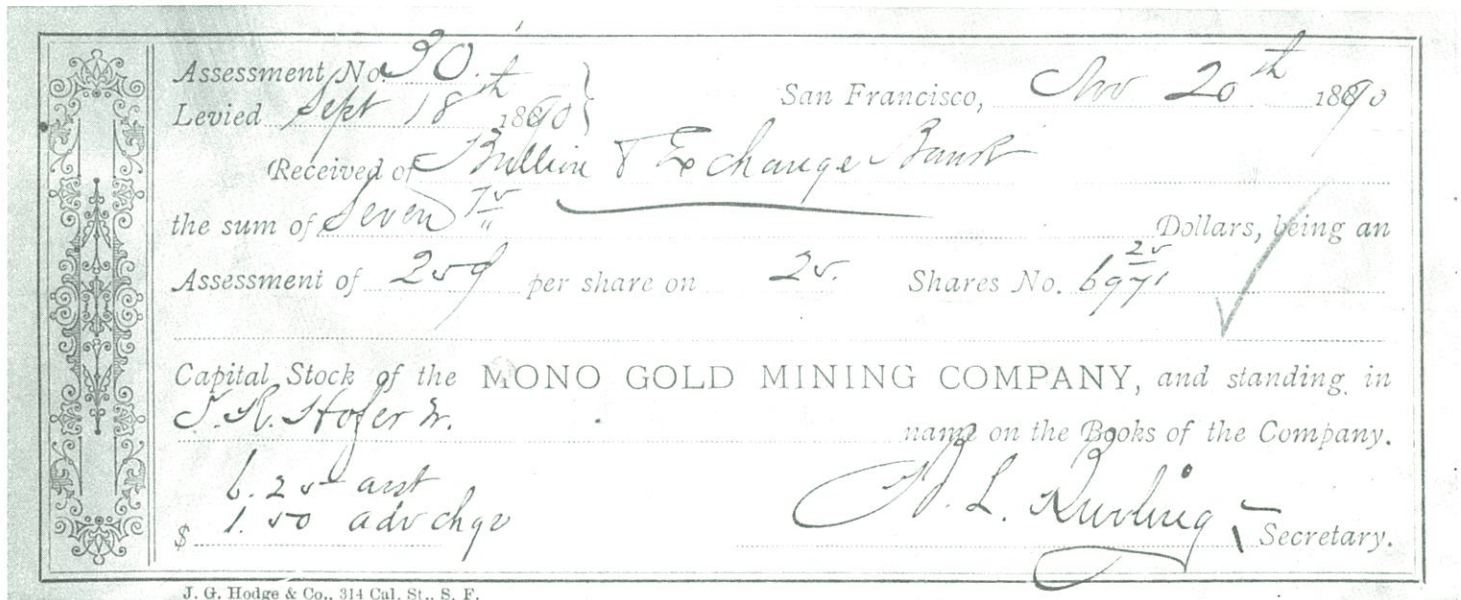 Assessment No. 30.
Levied Sept 18th 1890 San Francisco, Nov 20th 1890
Received of Bullion & Exchange Bank
the sum of Seven 75/" Dollars, being an
Assessment of 25¢ per share on 25. Shares No. 6971 25
Capital Stock of the MONO GOLD MINING COMPANY, and standing in
T. R. Hofer Jr. name on the Books of the Company.
6.25 asst
$ 1.50 adv chgs
L. Secretary.
J. G. Hodge & Co., 314 Cal. St., S. F.